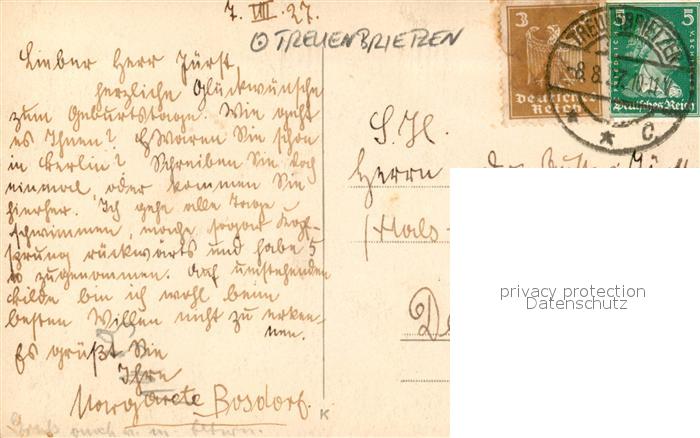 7. VIII. 27.
⊙ TREUENBRIETZEN
Lieber Herr Fürst,
herzliche Glückwünsche
zum Geburtstage. Wie geht
es Ihnen? Waren Sie schon
in Berlin? Schreiben Sie doch
einmal oder kommen Sie
hierher. Ich gehe alle Tage
schwimmen, mache sogar Kopf-
sprung rückwärts und habe 5
zugenommen. Auf umstehenden
Bilde bin ich wohl beim
besten Willen nicht zu erken-
nen.
Es grüßt Sie
Ihre
Margarete Bosdorf.
Gruß auch a. m. Eltern.
K
3 3
Deutsches
Reich
5 5
Deutsches Reich
TREUENBRIETZEN
8.8.27. 10-11
* * C.
S. H.
Herrn
(Hals-
privacy protection
Datenschutz